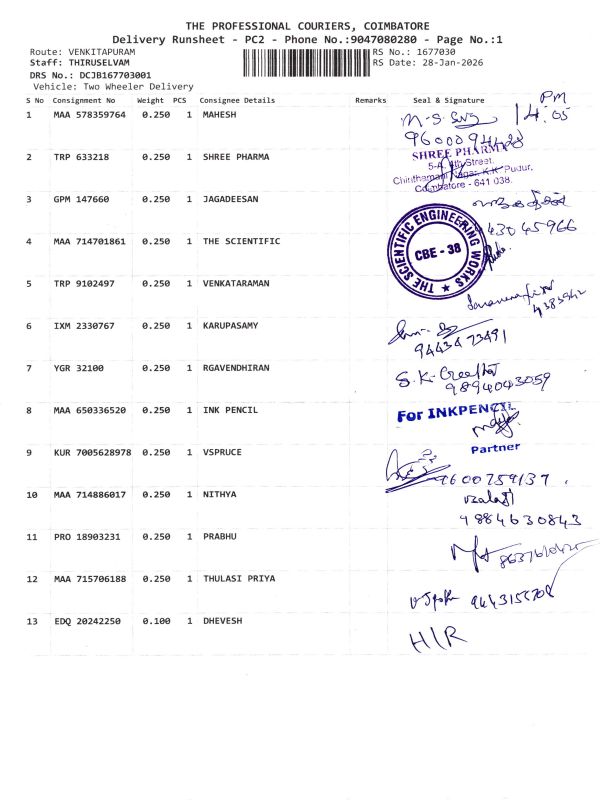 THE PROFESSIONAL COURIERS, COIMBATORE
Delivery Runsheet - PC2 - Phone No.:9047080280 - Page No.:1
Route: VENKITAPURAM RS No.: 1677030
Staff: THIRUSELVAM RS Date: 28-Jan-2026
DRS No.: DCJB167703001
Vehicle: Two Wheeler Delivery
S No Consignment No Weight PCS Consignee Details Remarks Seal & Signature
PM
14.05
1 MAA 578359764 0.250 1 MAHESH
2 TRP 633218 0.250 1 SHREE PHARMA
SHREE PHARMA
5-A, 4th Street,
Chinthamani Nagar, K.K. Pudur,
Coimbatore - 641 038.
3 GPM 147660 0.250 1 JAGADEESAN
4 MAA 714701861 0.250 1 THE SCIENTIFIC
THE SCIENTIFIC ENGINEERING WORKS
CBE - 38
5 TRP 9102497 0.250 1 VENKATARAMAN
6 IXM 2330767 0.250 1 KARUPASAMY
9443473491
7 YGR 32100 0.250 1 RGAVENDHIRAN
S.K.
9894043059
8 MAA 650336520 0.250 1 INK PENCIL
For INKPENCIL
Partner
9 KUR 7005628978 0.250 1 VSPRUCE
9600759137
10 MAA 714886017 0.250 1 NITHYA
9884630843
11 PRO 18903231 0.250 1 PRABHU
12 MAA 715706188 0.250 1 THULASI PRIYA
13 EDQ 20242250 0.100 1 DHEVESH
H/R